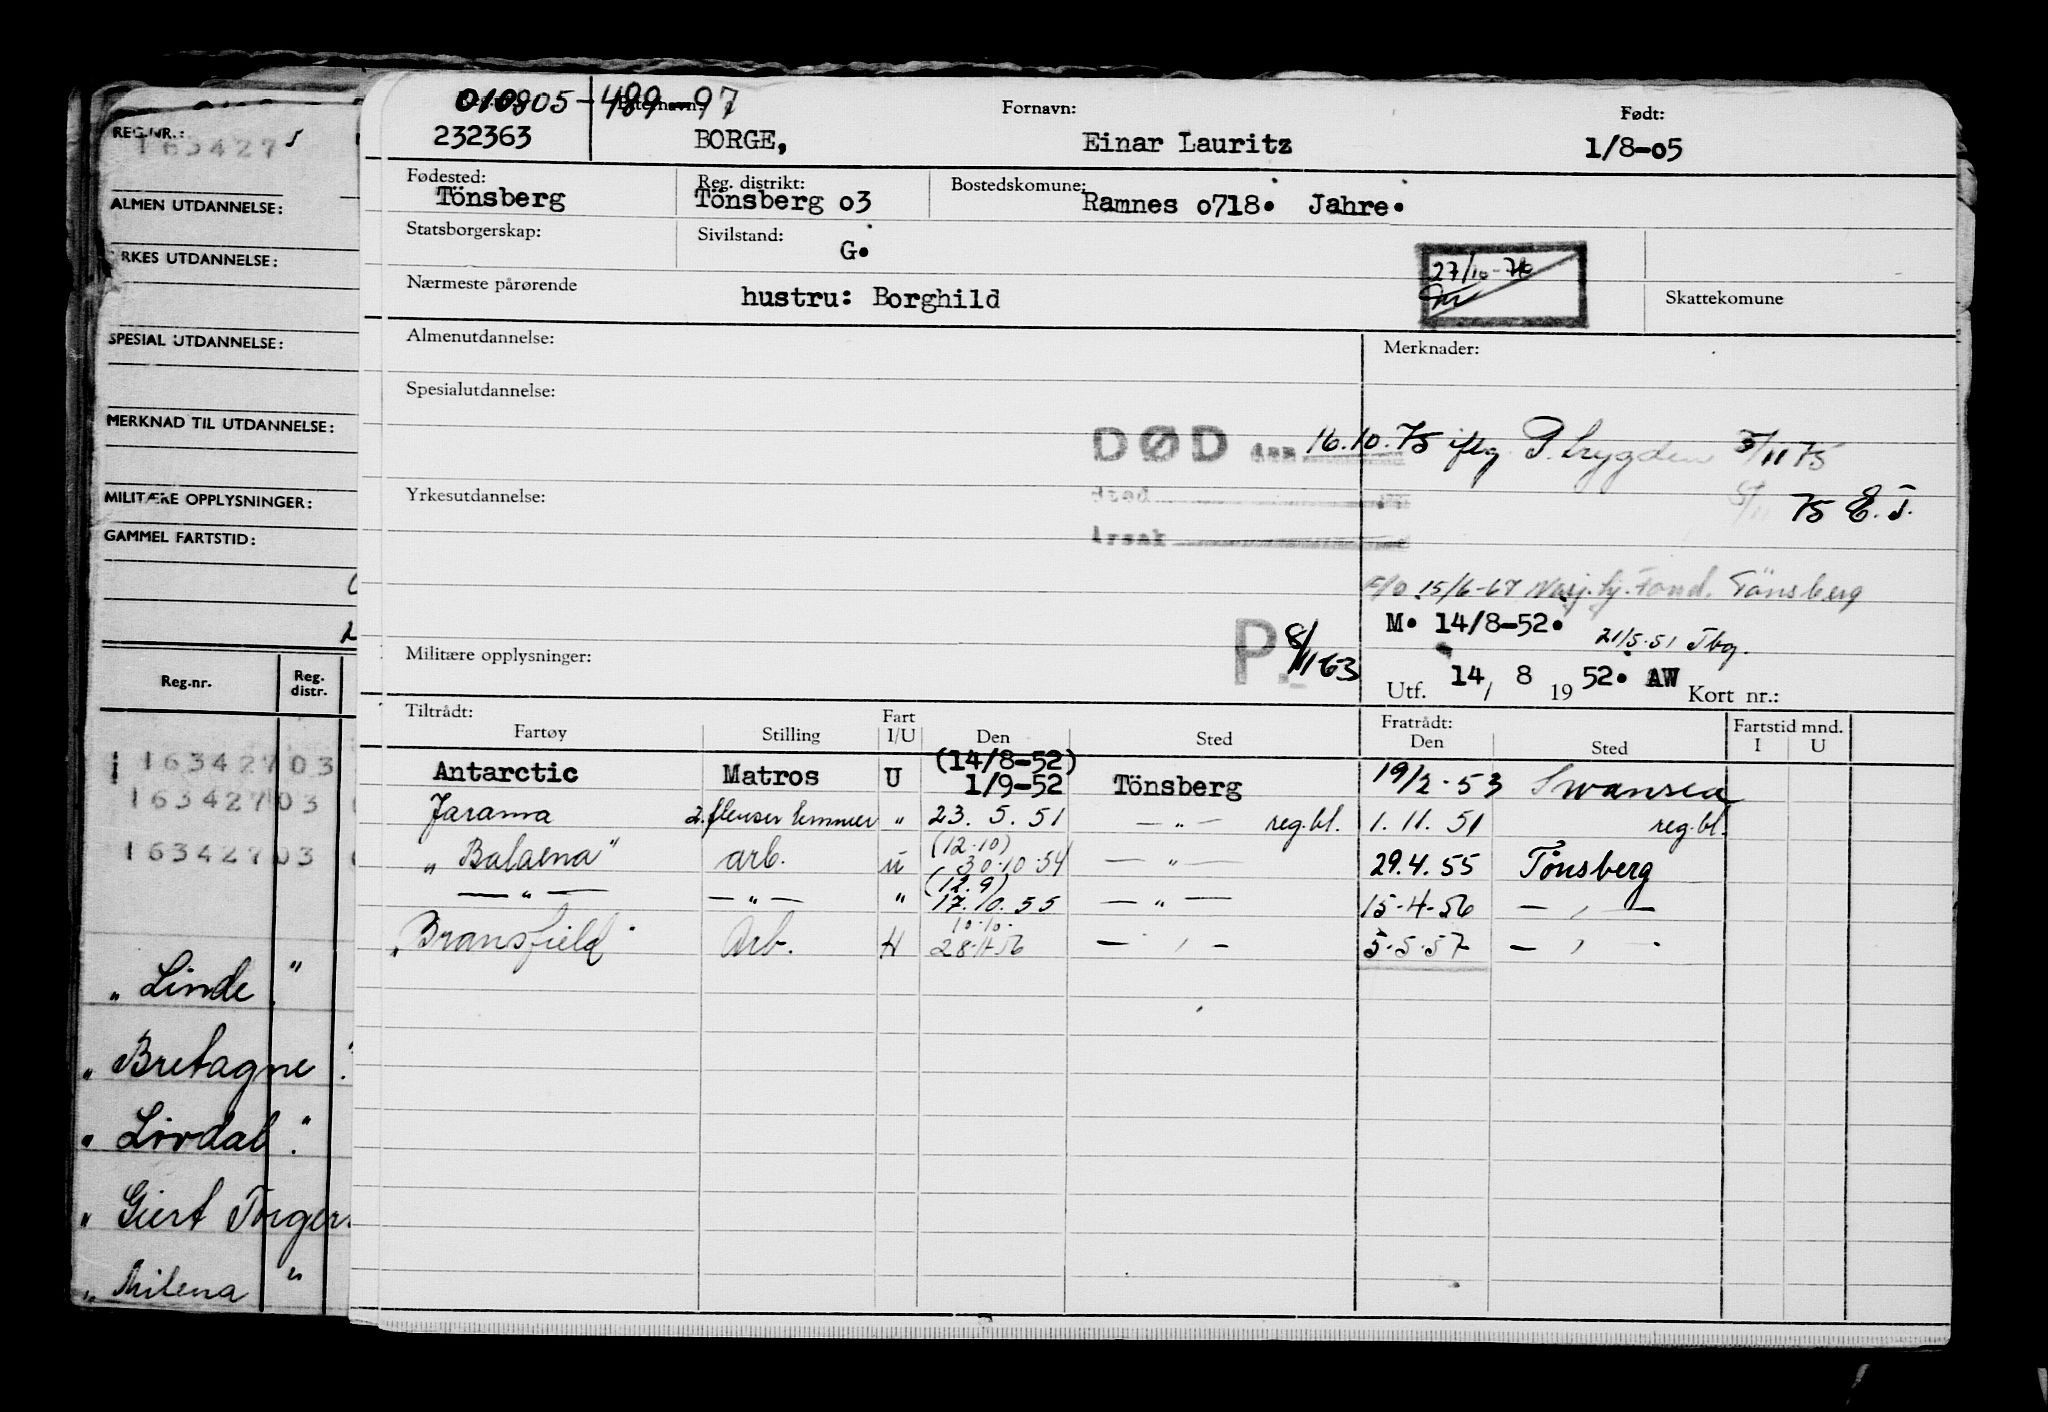 REG.NR.:
163427 5
ALMEN UTDANNELSE:
RKES UTDANNELSE:
SPESIAL UTDANNELSE:
MERKNAD TIL UTDANNELSE:
MILITÆRE OPPLYSNINGER:
GAMMEL FARTSTID:
Reg.nr. Reg. distr.
163427 03
163427 03
163427 03
"Linde"
"Bretagne"
"Lirdal"
"Giert Torger
"Milena"
010805-489-97 Fornavn: Født:
232363 BORGE, Einar Lauritz 1/8-05
Fødested: Reg. distrikt: Bostedskomune:
Tönsberg Tönsberg 03 Ramnes 0718. Jahre.
Statsborgerskap: Sivilstand:
G.
27/10-76
Nærmeste pårørende hustru: Borghild Skattekomune
Almenutdannelse: Merknader:
Spesialutdannelse:
DØD den 16.10.75 iflg P. trygden 3/11 75
sted
75 E.T.
Yrkesutdannelse:
årsak
F/O 15/6-67 Tönsberg
M. 14/8-52. 21/5.51 Tbg.
P. 8/11 63
Militære opplysninger:
Utf. 14/ 8 19 52. AW Kort nr.:
Tiltrådt: Fart Fratrådt: Fartstid mnd.
Fartøy Stilling I/U Den Sted Den Sted I U
(14/8-52)
Antarctic Matros U 1/9-52 Tönsberg 19/2.53 Swansea
Jarama 2. flenser lemmer " 23.5.51 — " — reg.bl. 1.11.51 reg.bl.
(12.10)
"Balaena" arb. u 30.10.54 — " — 29.4.55 Tönsberg
(12.9)
— " — — " — " 17.10.55 — " — 15.4.56 — , —
10.10.
"Bransfield" Arb. U 28.11.56 — , — 5.5.57 — , —